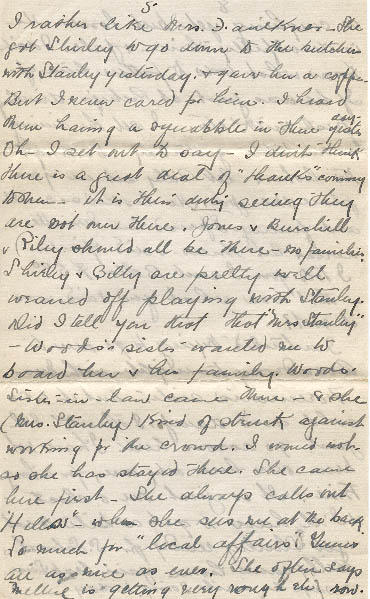 5
I rather like Mrs. Faulkner - She
got Shirley to go down to the butcher
with Stanley yesterday. & gave her a coffee
But I never cared for him. I heard
them having a squabble in there
Oh - I set out to say - I don't think
there is a great deal of "thanks" coming
to them - it is their duty seeing they
are not over there. Jones &
& Riley should all be there - no families.
Shirley & Billy are pretty well
weaned off playing with Stanley.
Did I tell you that that "Mrs Stanley"
- Woods's sister wanted me to
board her & her family. Woods.
Sister-in-law came then - & she
(Mrs. Stanley) kind of struck against
working for the crowd. I would not
so she has stayed there. She came
here first - She always calls out
"Hello" - when she sees me at the back
So much for "local affairs".
are as nice as ever. She often says
Mellie is getting very rough now.